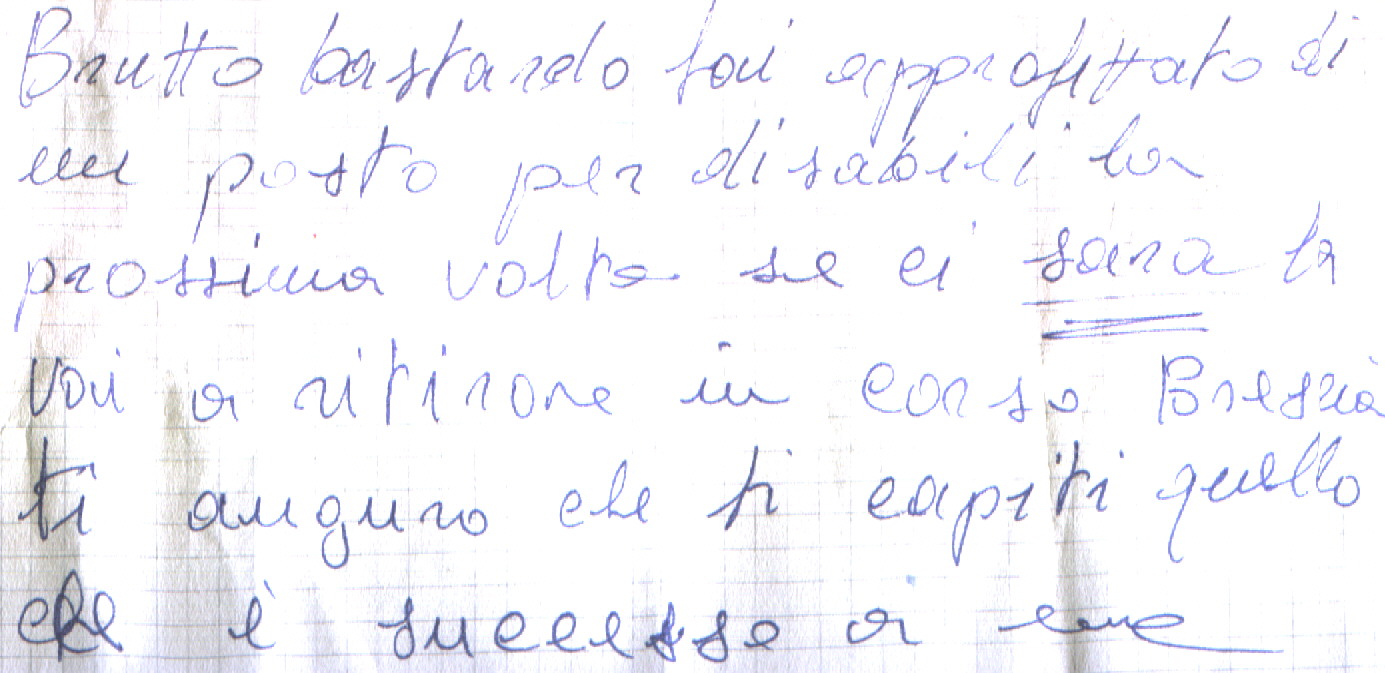 Brutto bastardo hai approfittato di
un posto per disabili la
prossima volta se ci sara la
vai a ritirare in corso Brescia
ti auguro che ti capiti quello
che è successo a me